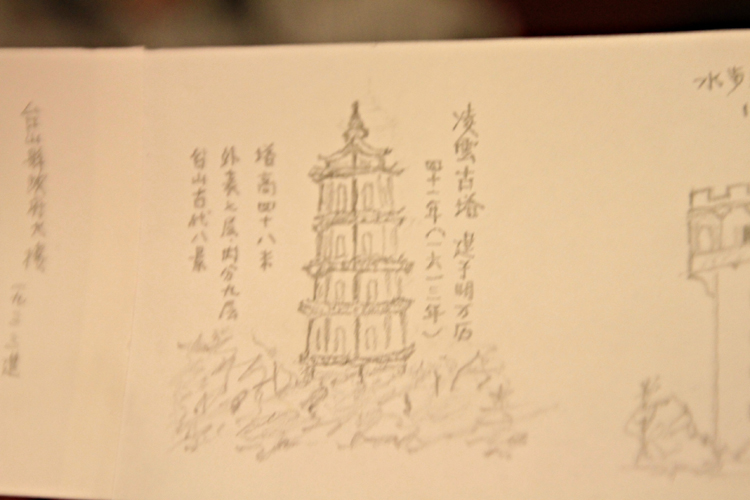 水步
凌雲古塔 建于明万历
四十一年(一六一三年)
塔高四十八米
外表七层,内分九层
台山古代八景
台山县政府大楼 一九三三建